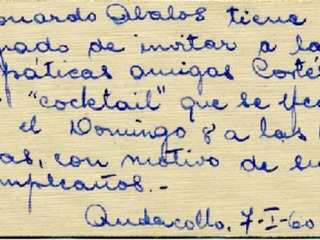 onardo Abalos tiene
grado de invitar a la
páticas amigas Corté
"cocktail" que se efec
el Domingo 8 a las
as, con motivo de su
mpleaños.-
Andacollo, 7-I-60